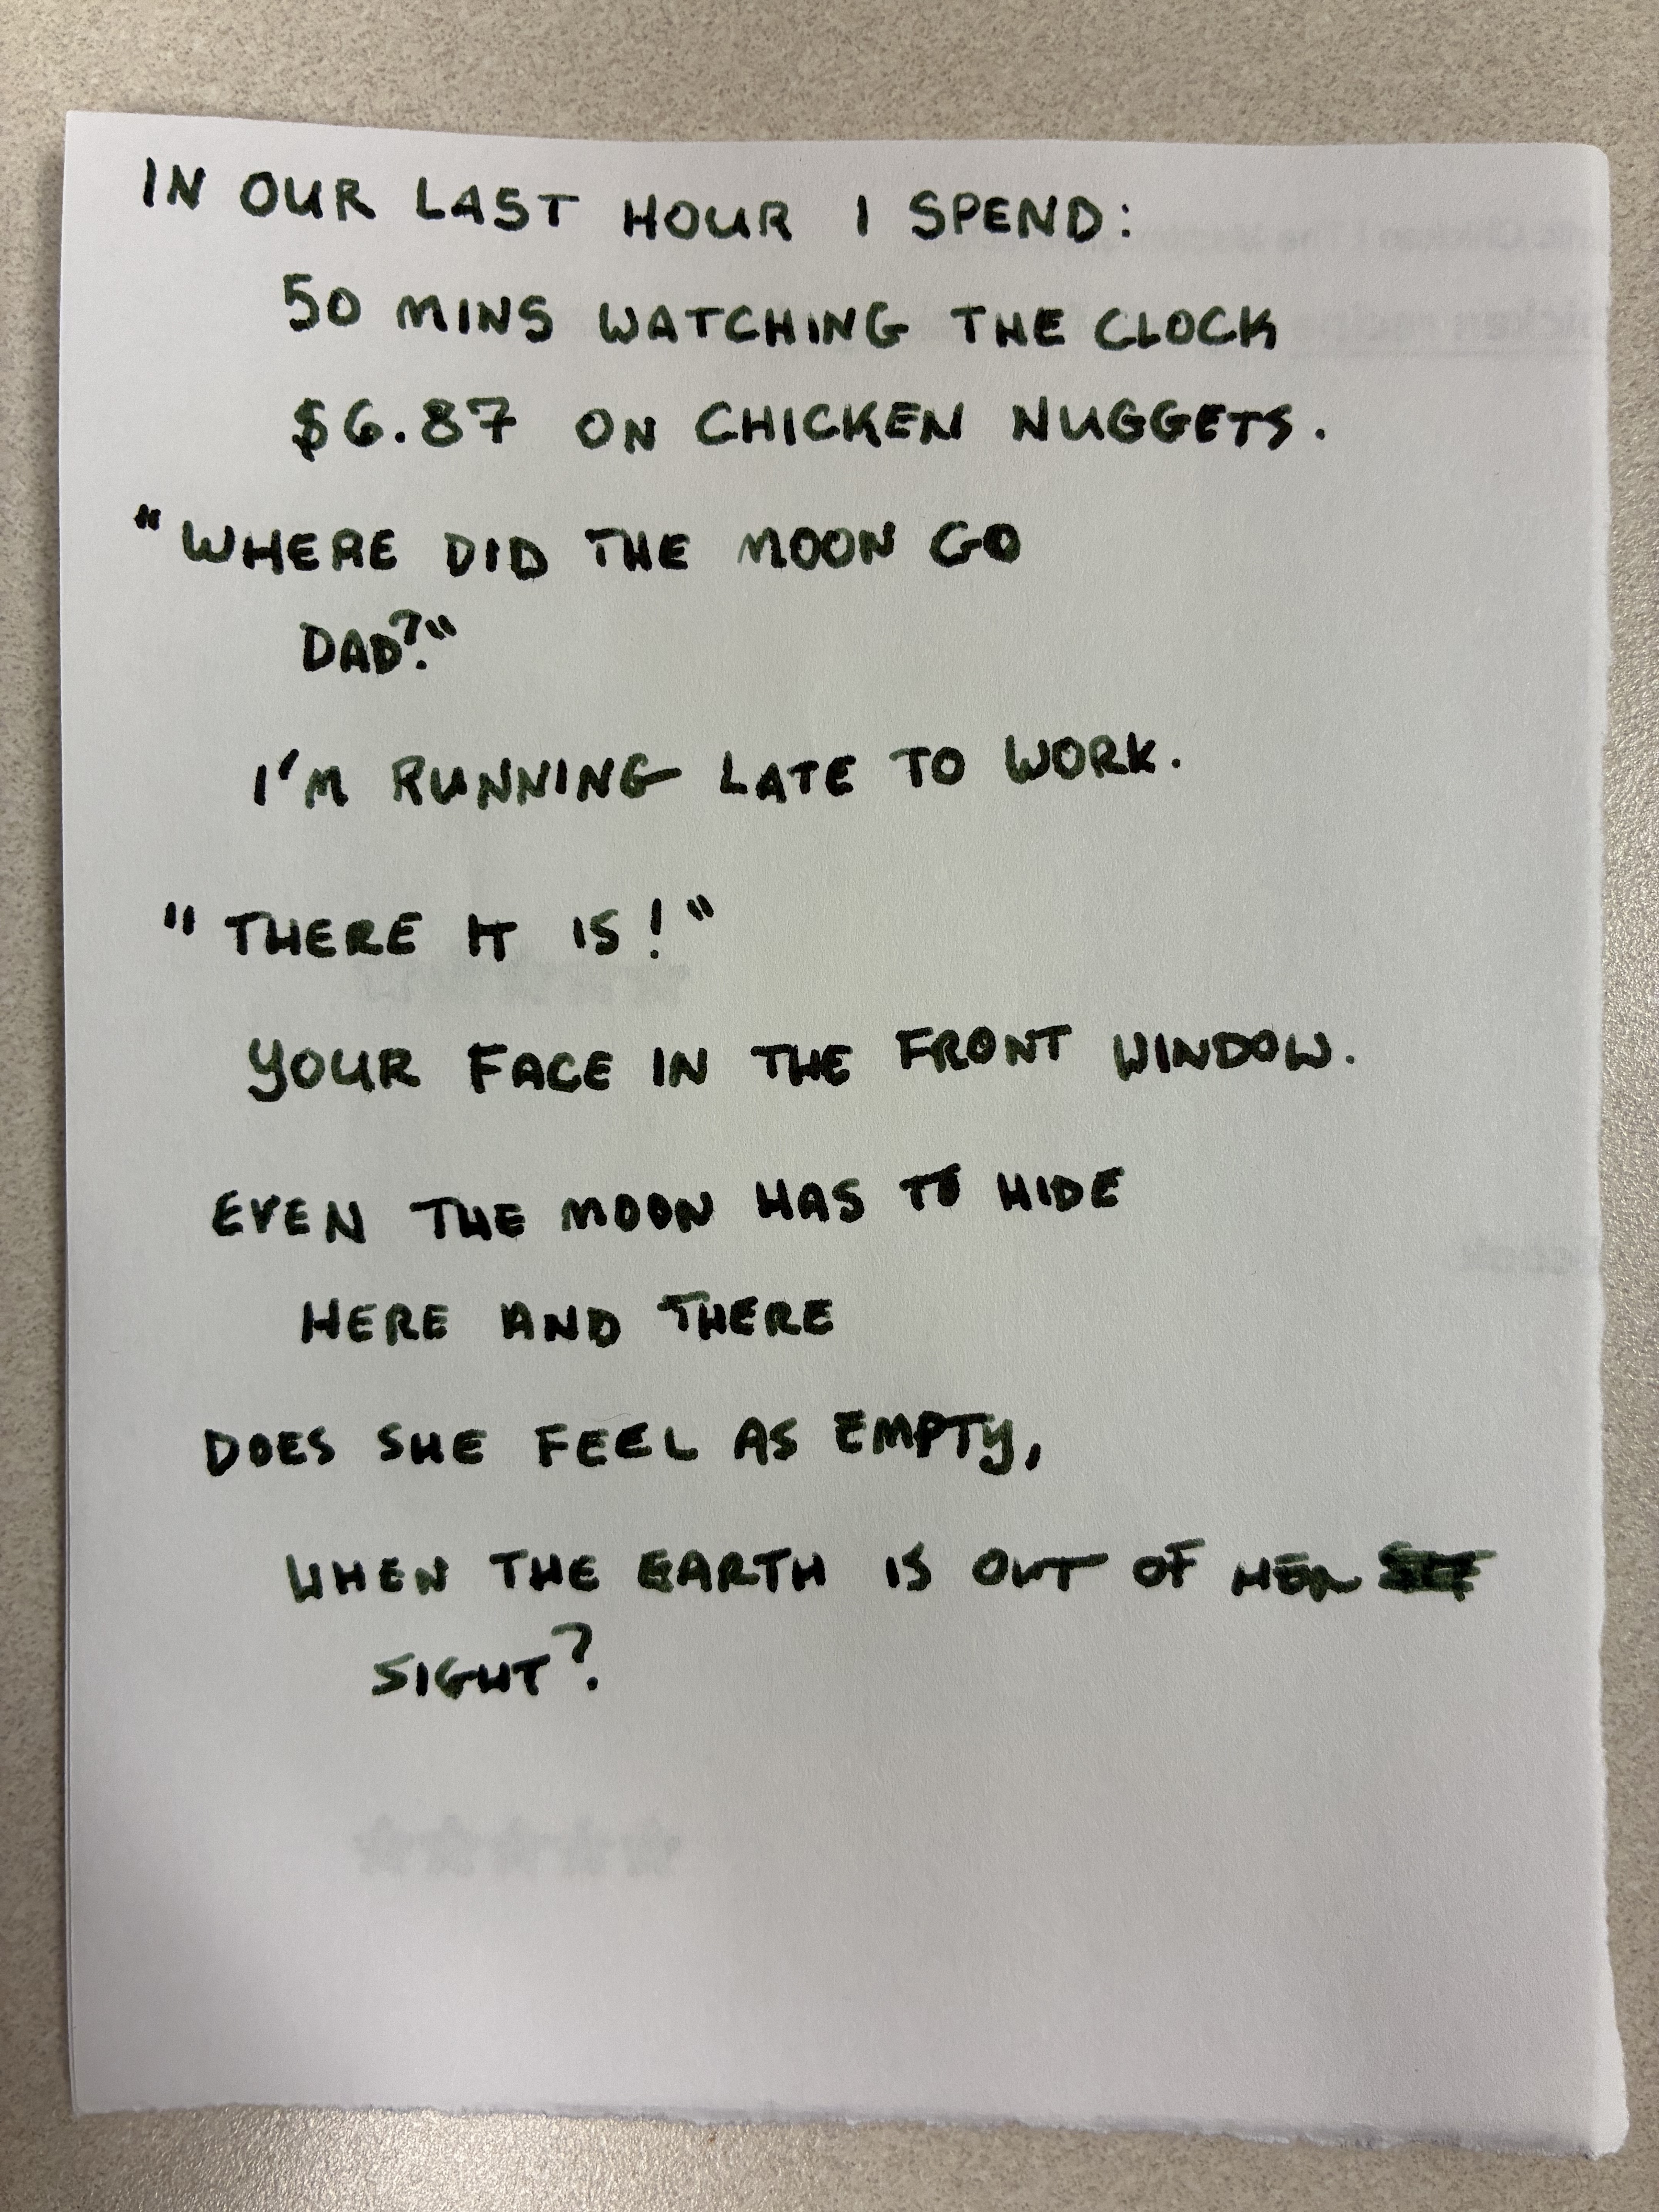 IN OUR LAST HOUR I SPEND:
50 MINS WATCHING THE CLOCK
$6.87 ON CHICKEN NUGGETS.
"WHERE DID THE MOON GO
DAD?"
I'M RUNNING LATE TO WORK.
"THERE IT IS!"
YOUR FACE IN THE FRONT WINDOW.
EVEN THE MOON HAS TO HIDE
HERE AND THERE
DOES SHE FEEL AS EMPTY,
WHEN THE EARTH IS OUT OF HER
SIGHT?